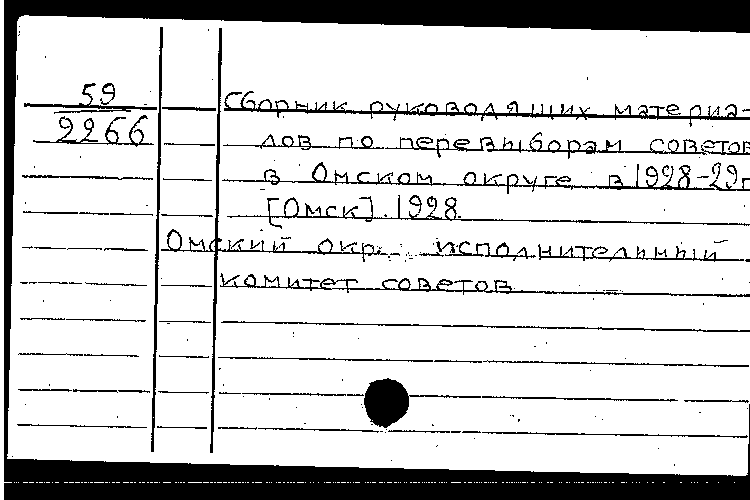 59
2266
Сборник руководящих материа-
лов по перевыборам советов
в Омском округе в 1928-29г
[Омск]. 1928
Омский окр. исполнительный
комитет советов